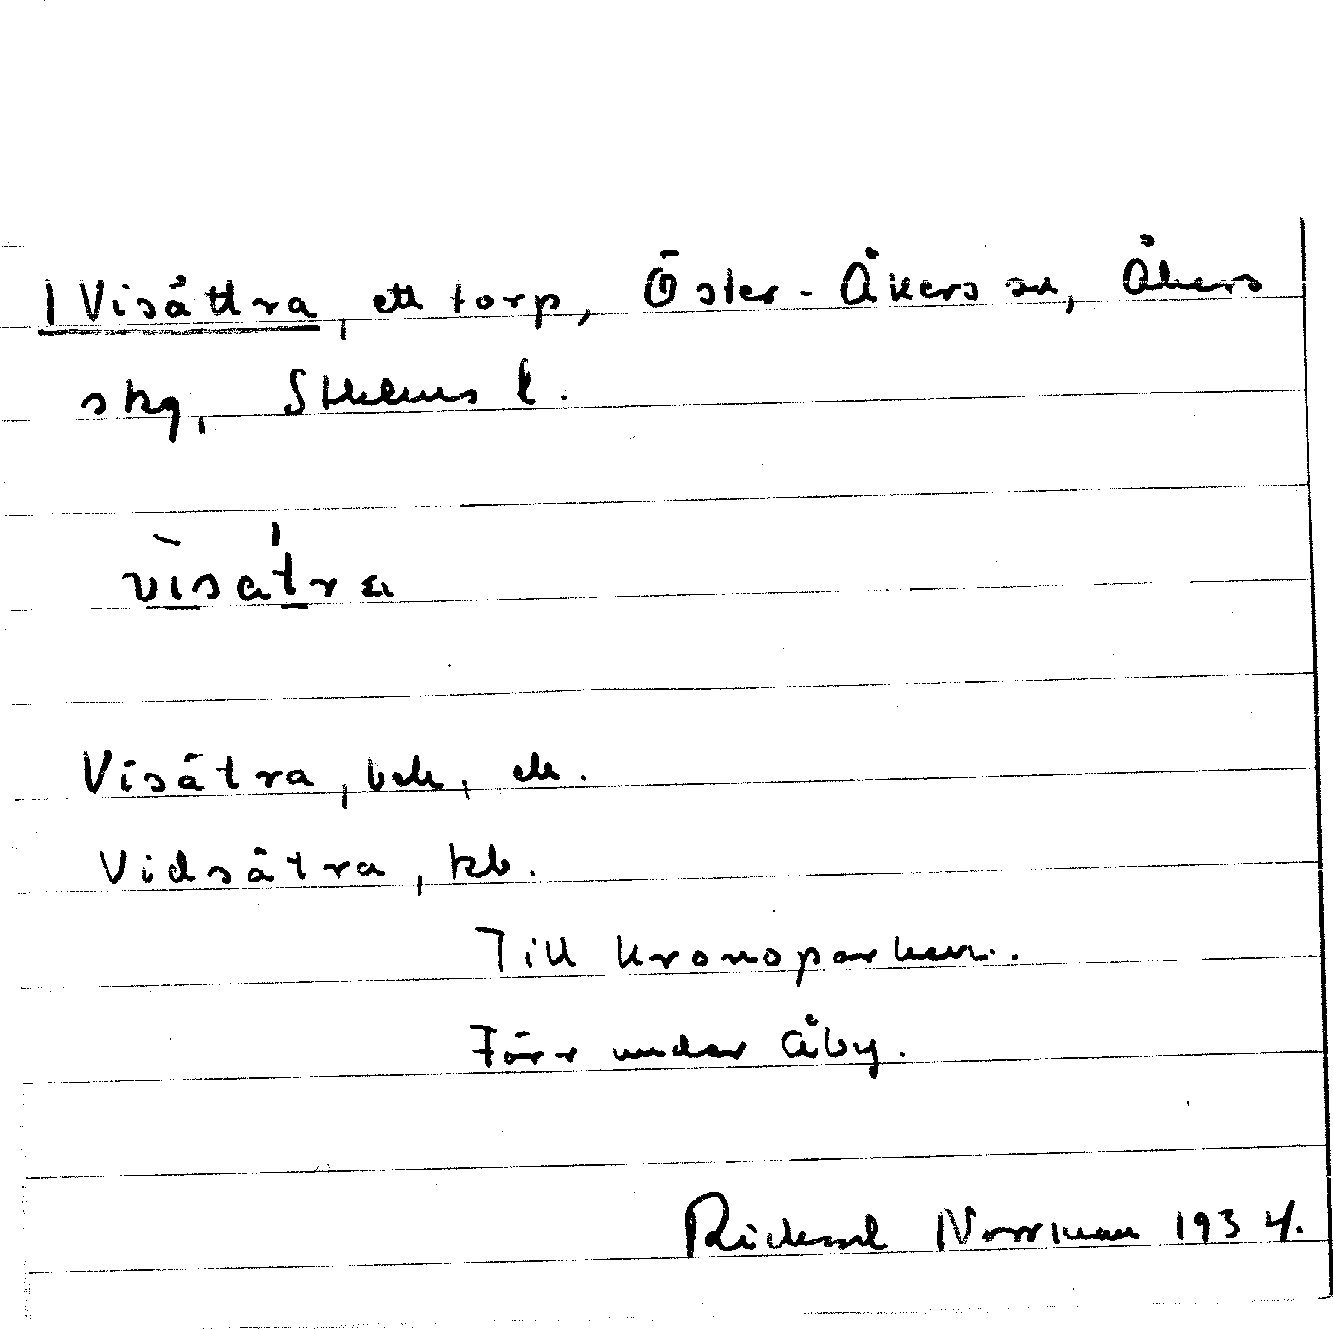 1 Visättra, ett torp, Öster-Åkers sn, Åkers
skg, Sthlms l.
visatra
Visätra, bok, ek.
Vidsätra, kb.
Till kronoparken.
Förr under Åby.
Rickard Norrman 1934.